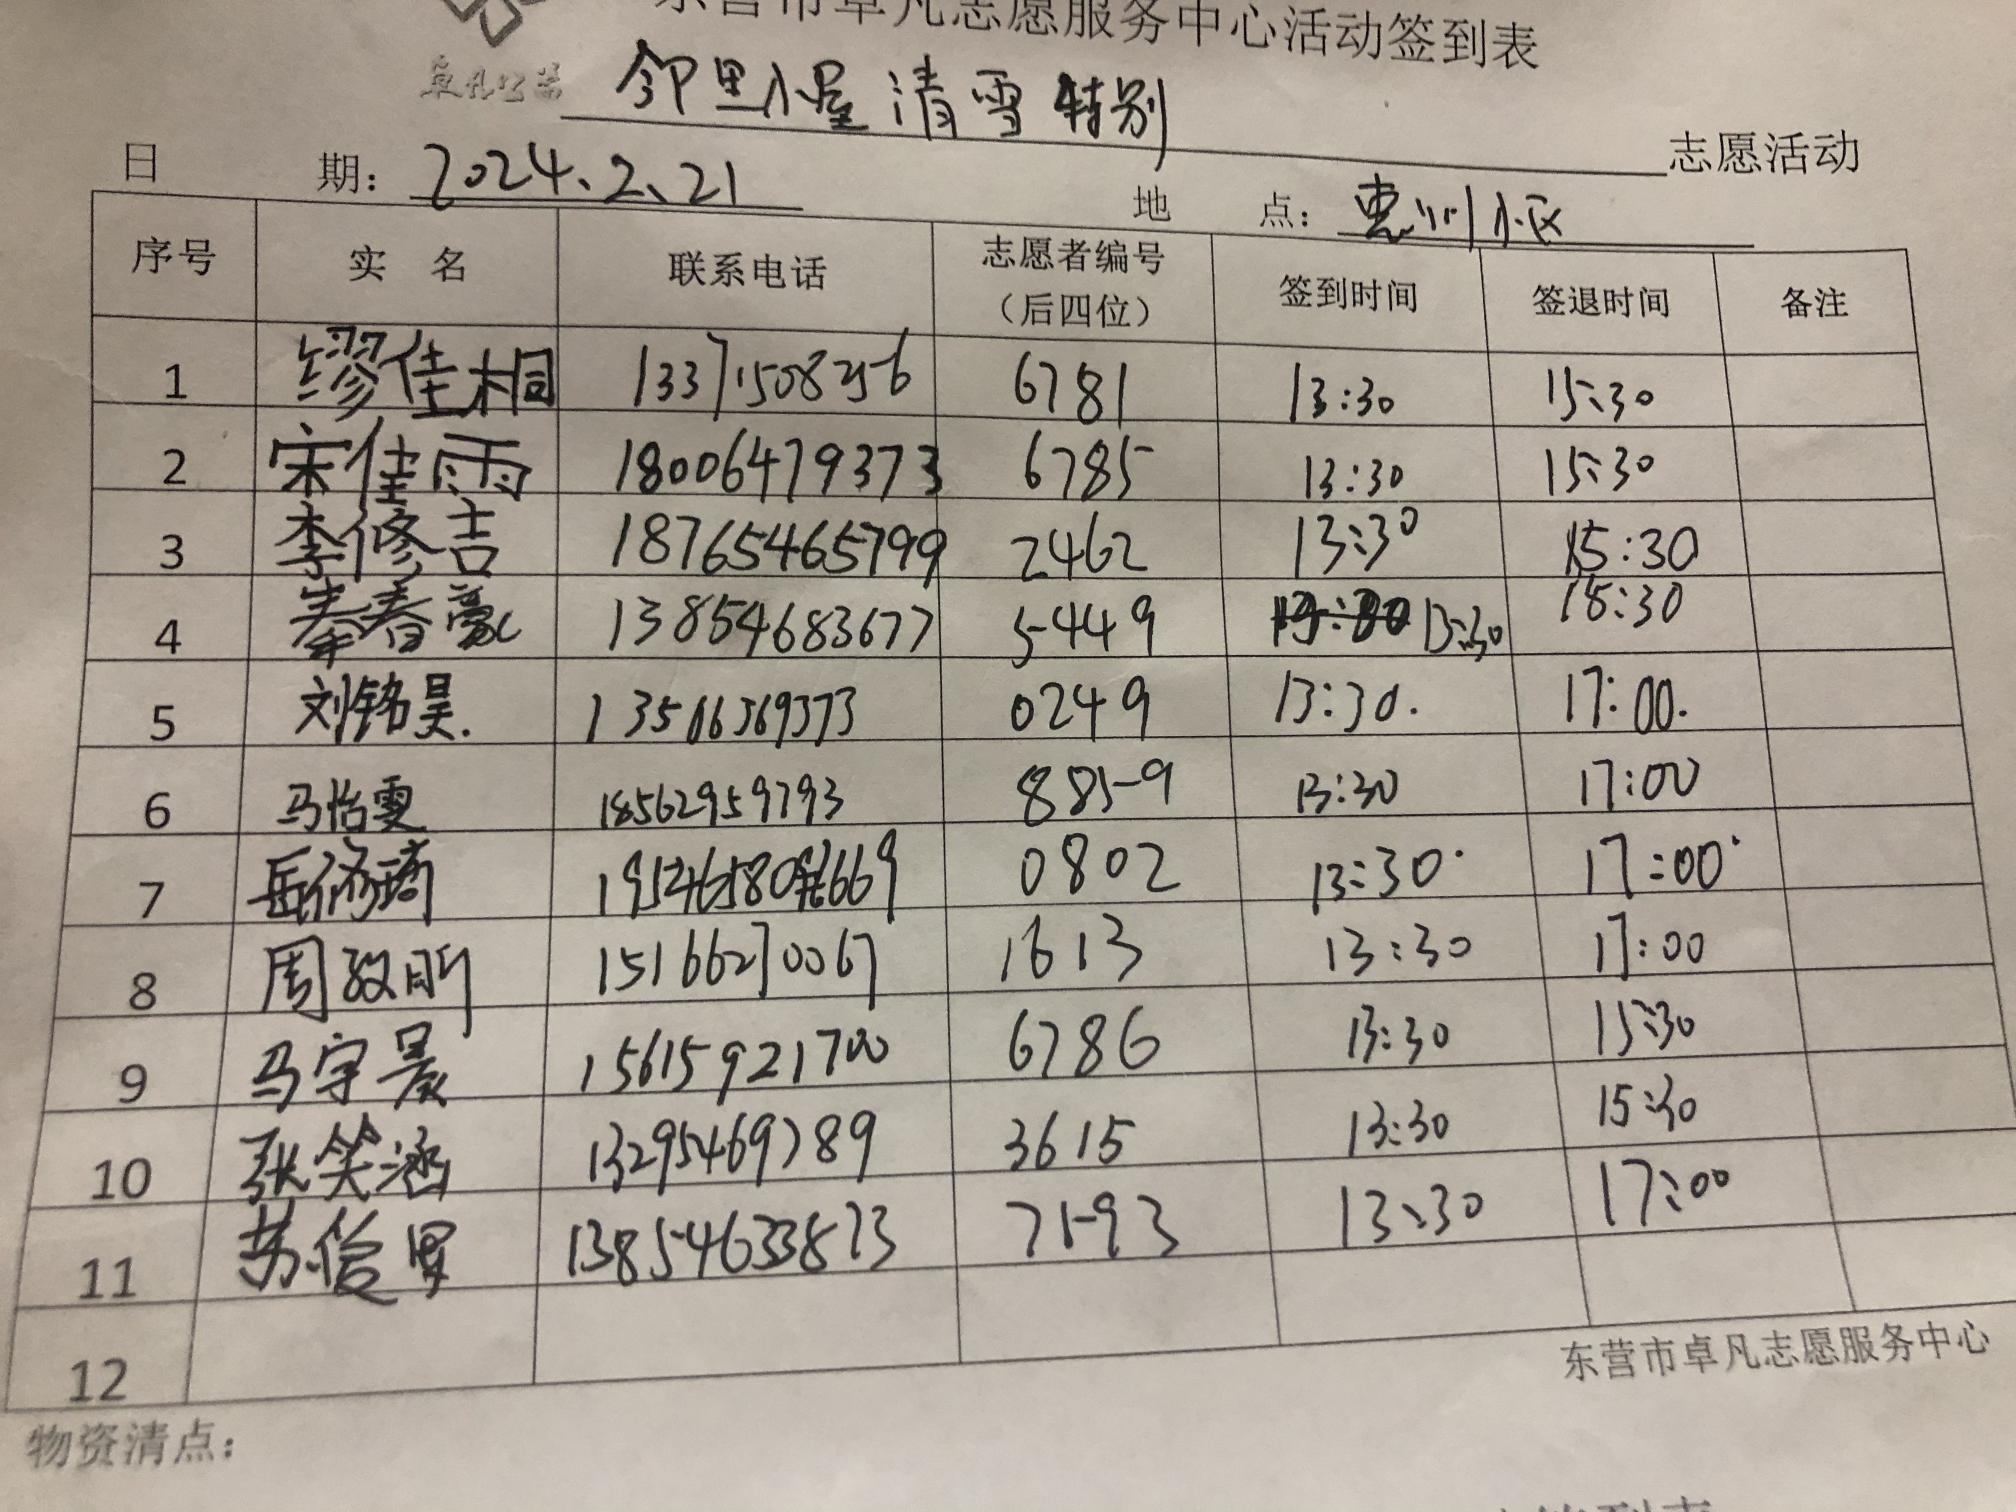 东营市卓凡志愿服务中心活动签到表
卓凡公益 邻里小屋清雪特别 志愿活动
日 期：2024.2.21 地 点：惠川小区
序号 实 名 联系电话 志愿者编号（后四位） 签到时间 签退时间 备注
1 缪佳桐 13371508256 6781 13:30 15:30
2 宋佳雨 18006479373 6785 13:30 15:30
3 李修吉 18765465799 2462 13:30 15:30
4 春豪 13854683677 5449 13:30 15:30
5 刘铭昊. 13506369373 0249 13:30. 17:00.
6 马怡雯 18562959793 8859 13:30 17:00
7 岳修琦 0802 13:30 17:00
8 周致昕 15166270067 1613 13:30 17:00
9 马宇晨 15615921700 6786 13:30 15:30
10 张笑涵 13295469789 3615 13:30 15:30
11 苏俊 13854633873 7193 13:30 17:00
12
东营市卓凡志愿服务中心
物资清点：